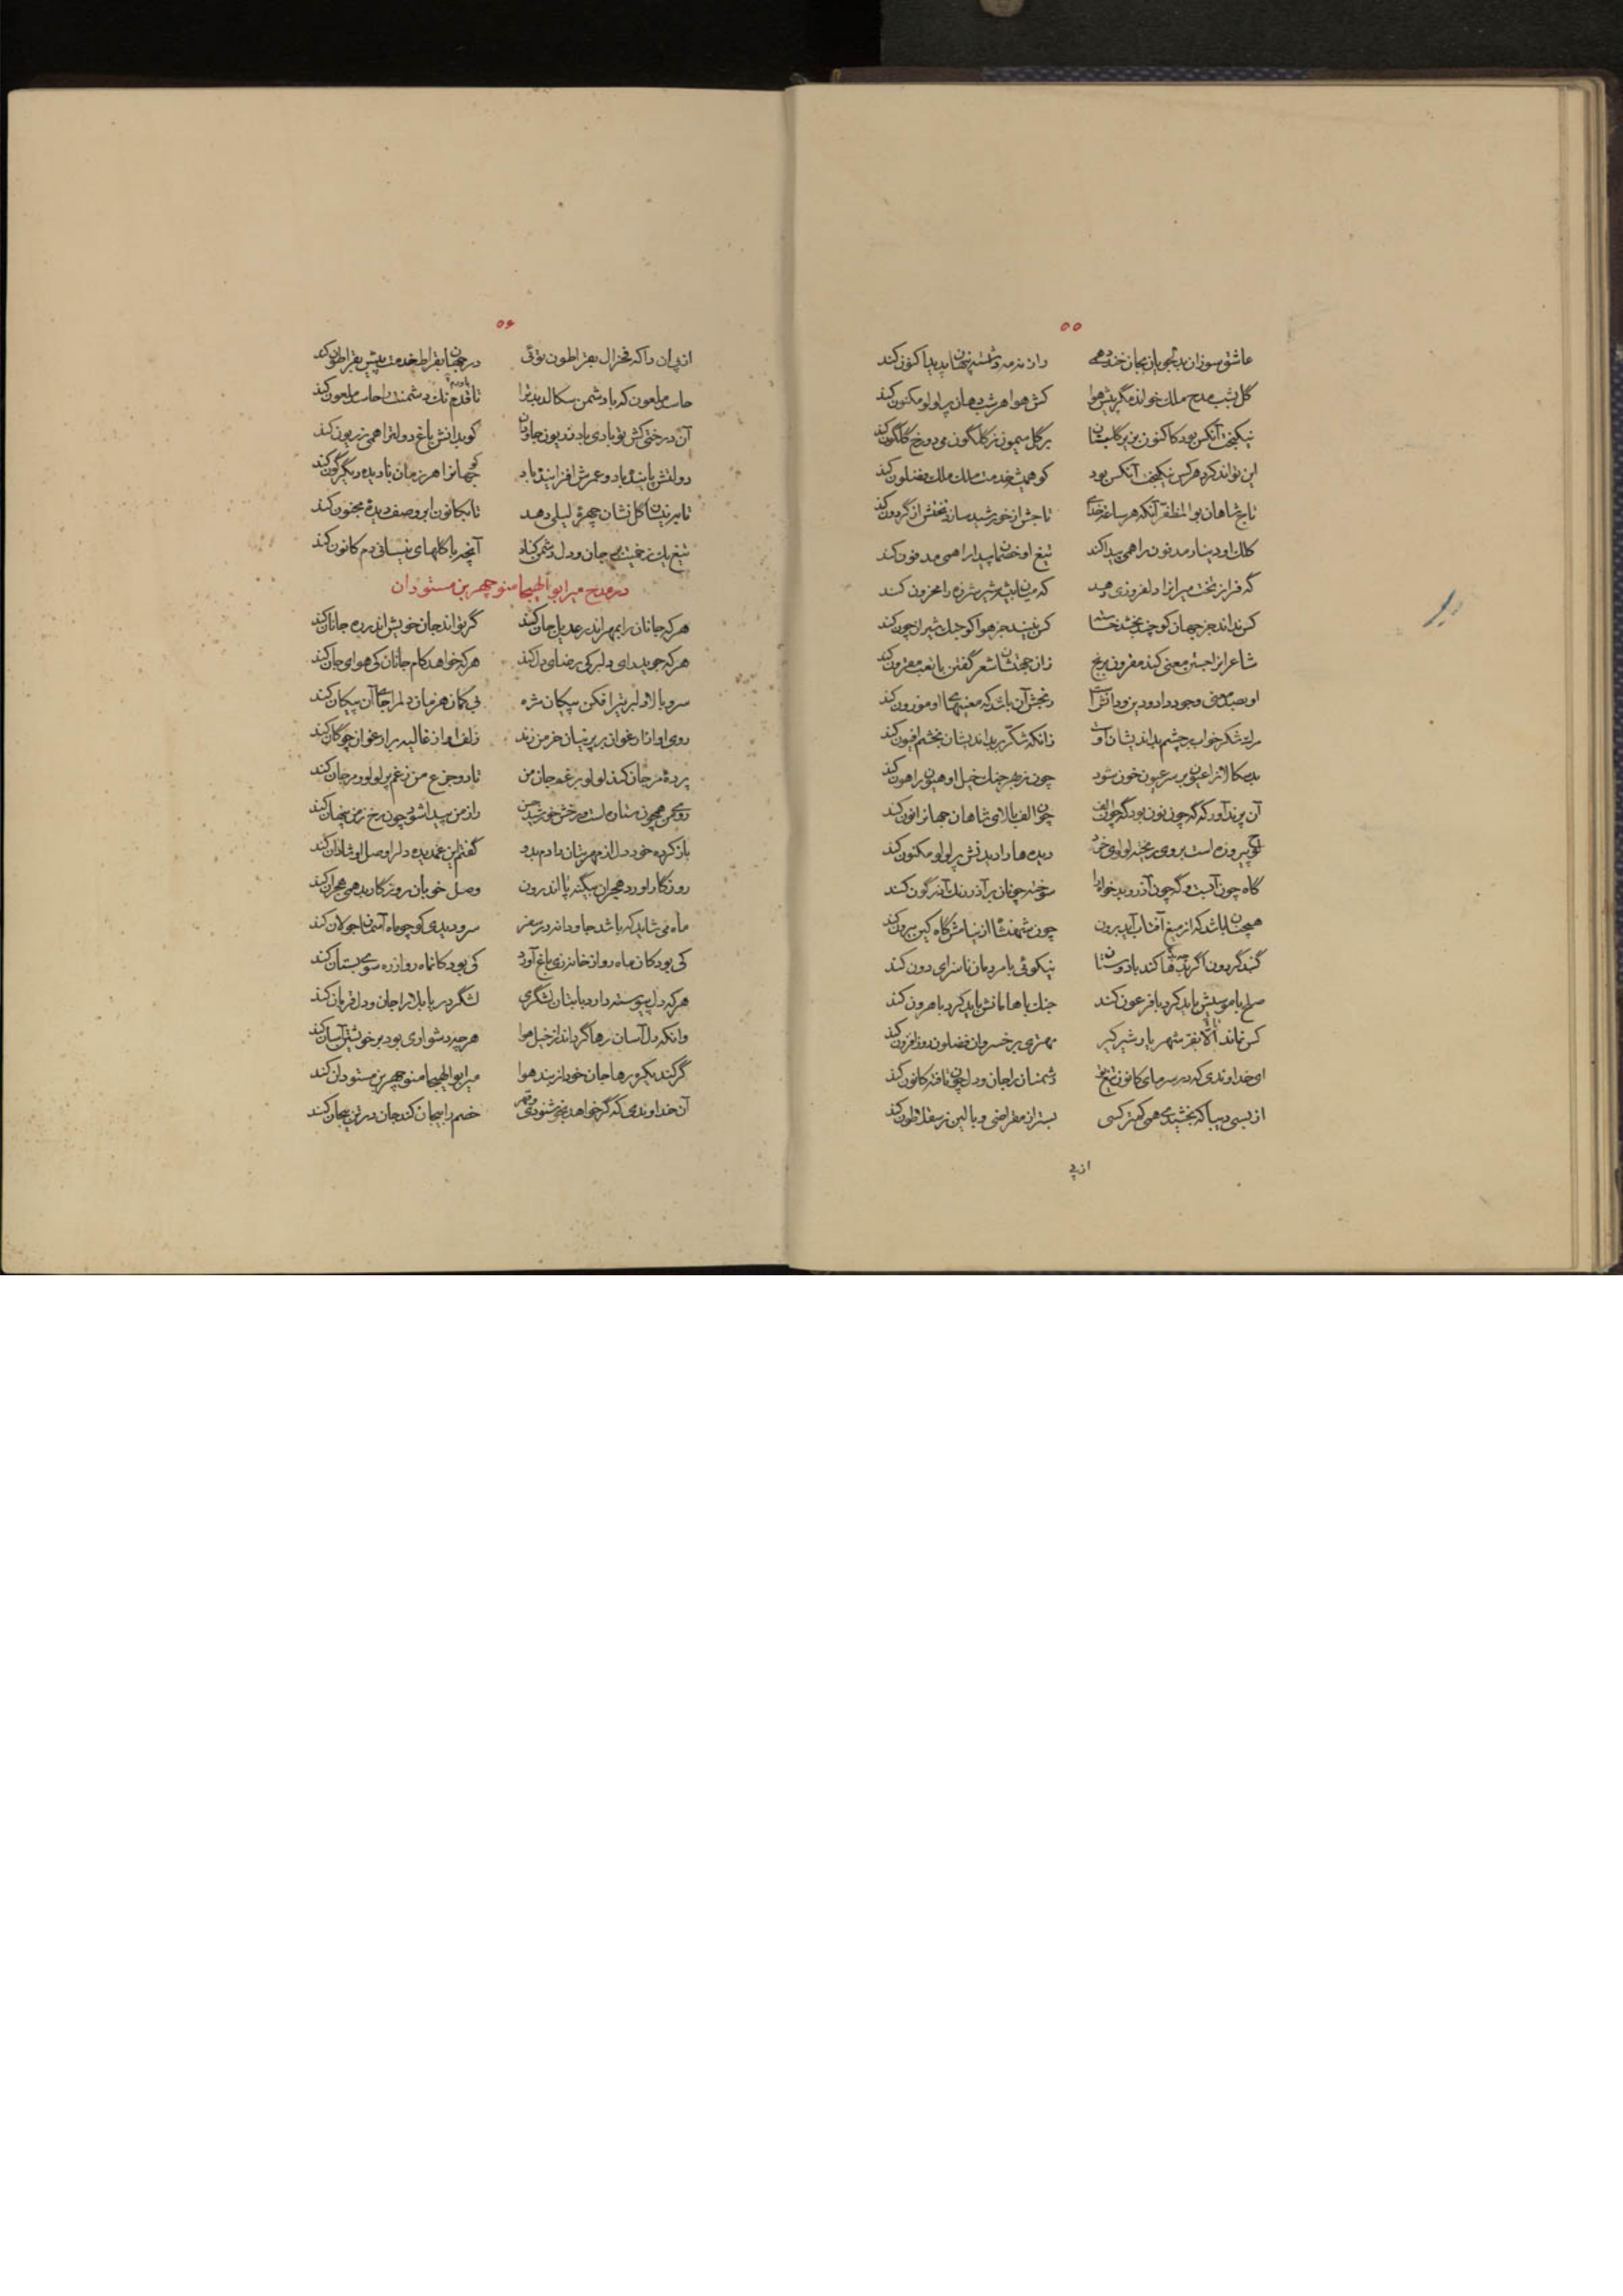 ۵۵
عاشق سوزان بدلجویان بجان خنده همی راز نرمه در شنبه پنهان پدید اکنون کند
گل بشب مدح ملک خواند مگر پیش هوا کش هوا هر شب دهان پر لولو مکنون کند
نیکبخت آنکس بود کاکنون بزیر گلبنان بر گل میمون ز گلگون می دو رخ گلگون کند
این تواند کرد هر کس نیکبخت آنکس بود کو همیشه خدمت ملک ملک فضلون کند
تاج شاهان بوالمظفر آنکه هر ساعه خدای تاجش از خورشید سازد تختش از گردون کند
کلک او دینار مدفون را همی پیدا کند تیغ او خصمان پیدا را همی مدفون کند
گه فراز تخت میرانرا دلفروزی دهد گه میان بیشه شیر شرزه را محزون کند
کس نداند جز جهان کو چند بخشد خسته را کس نبیند جز هوا کو جنک شیران چون کند
شاعرانرا جستن معنی کند مقرون برنج زان جهتشان شعر گفتن با تعب مقرون کند
او صد معنی وجود و داد و دین و دانش است رنجش آن باشد که معنیهای او موزون کند
مرد شکر خواب بر چشم بداندیشان اوست زانکه شکر بر بداندیشان بخشم افیون کند
بدسگالانرا عیون بر سر عیون خون شود چون بزهر جنک خیل او هیون را هون کند
آن پرند آور که گه چون نون بود گه چون الف چون الف بالای شاهان جهانرا نون کند
لوح پیروزه است بروی ریخته لولوی خرد دیده ها را دیدنش پر لولو مکنون کند
گاه چون آبست و گه چون آذر و بدخواه را سوخته چونان بر آذر رنک آذرگون کند
همچنان باشد که از میغ آفتاب آید برون چون شهنشاه از نیامش گاه کین بیرون کند
گنبد گردون اگر بد ها کند با دوستان نیکوئی با مردمان ناسزای دون کند
صلح با موسیش باید کرد با فرعون کند جنک با هامانش باید کرد با هرون کند
کس نماند الا بقر شهریار شیر گیر مهتری بر خسروان فضلون روز افزون کند
ای خداوندی که در سرمای کانون تیغ تو دشمنانرا جان و دل چون تافته کانون کند
از بسی دیبا که بخشیدی همی کهتر کسی بستر از مقراضی و بالین ز سقلاطون کند
از پی
۵۶
از پی آن را که فخر آل بقراطون توئی در جهان بقراط خدمت پیش بقراطون کند
حاسد ملعون که با دشمن سکالد بد ترا تا قدم نک دشمنت را حاسد ملعون کند
آن درختی کش تو بادی باد زیر بون جاودان کو بدانش باغ دولترا همی زریون کند
دولتش پاینده باد و عمرش افزاینده باد کو جهانرا هر زمان نادیده دیگرگون کند
تا بر نیسان گل نشان چهرهٔ لیلی دهد تا بکانون ابر وصف دیدهٔ مجنون کند
تیغ یک زخمت بر جان و دل دشمن کناد آنچه با گلهای نیسانی دم کانون کند
در مدح میر ابو الهیجا منوچهر بن مستودان
هر که جانان را بمهر اندر عدیل جان کند گر تواند جان خویش اندر ره جانان کند
هر که جوید رای دلبر کی رضای دل کند هر که خواهد کام جانان کی هوای جان کند
سرو بالا دلبر تیر افکن پیکان مژه بی کمان هر زمان دلمرا جای آن پیکان کند
روی او از ارغوان بر پرنیان خرمن زند زلف او از غالیه بر ارغوان چوگان کند
پردهٔ مرجان کند لولو برغم جان من تا دو جزع من ز غم پر لولو و مرجان کند
روی من همچون ستاره است و رخش خورشید حسن راز من پیدا شود چون رخ ز من پنهان کند
باز کرده خود دل از مهر بتان دادم بدو گفتم این غمدیده دلرا وصل او شادان کند
روزگار اورد هجران بیگنه پا اندرون وصل خوبان روزگار بد همی هجران کند
ماه می شاید که باشد جاودانه در سفر سرو دیدی کو چو ماه آسمان جولان کند
کی بود کان ماه رو از خانه زی باغ آورد کی بود کان ماه رو از ره سوی بستان کند
هر که دل پیوسته دارد با بتان لشگری لشگر دریا بلا را جان و دل قربان کند
وانکه دل آسان رها گرداند از خیل هوا هر چه دشواری بود بر خویشتن آسان کند
گر کند یکرو رها جان خود از بند هوا میر ابو الهیجا منوچهر بن مستودان کند
آن خداوندی که گر خواهد بخوشنودی و قهر خصم را بیجان کند جان در تن بیجان کند